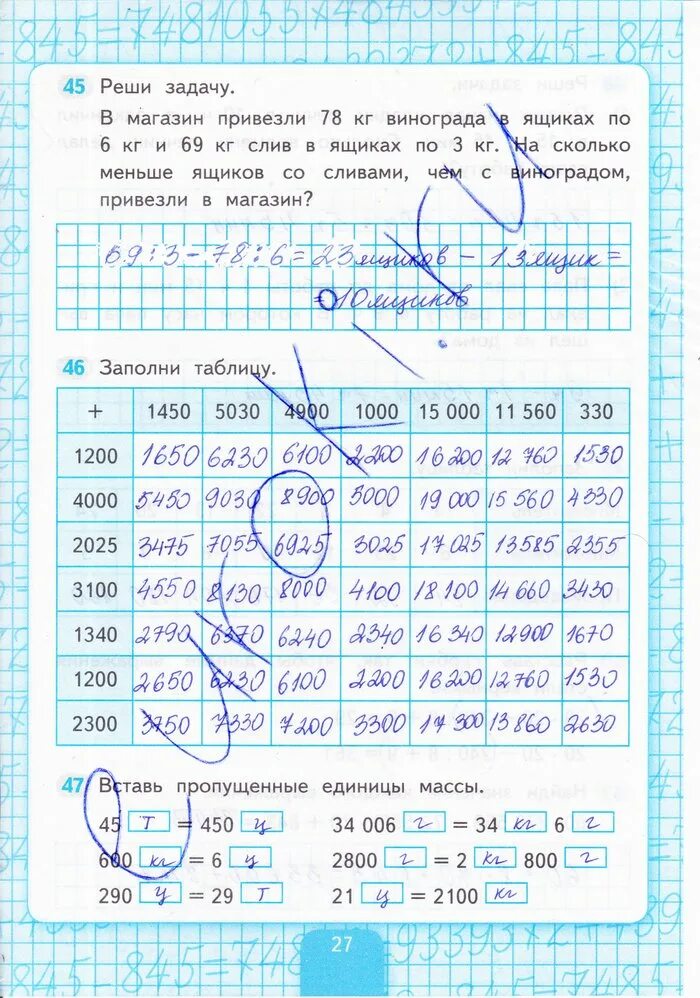 45 Реши задачу.
В магазин привезли 78 кг винограда в ящиках по
6 кг и 69 кг слив в ящиках по 3 кг. На сколько
меньше ящиков со сливами, чем с виноградом,
привезли в магазин?
69:3-78:6=23 ящиков - 13 ящик=
=10 ящиков
46 Заполни таблицу.
+ 1450 5030 4900 1000 15 000 11 560 330
1200 1650 6230 6100 2200 16 200 12 760 1530
4000 5450 9030 8900 5000 19 000 15 560 4330
2025 3475 7055 6925 3025 17 025 13585 2355
3100 4550 8130 8000 4100 18 100 14 660 3430
1340 2790 6370 6240 2340 16 340 12900 1670
1200 2650 6230 6100 2200 16 200 12 760 1530
2300 3750 7330 7200 3300 17 300 13 860 2630
47 Вставь пропущенные единицы массы.
45 т = 450 ц 34 006 г = 34 кг 6 г
600 кг = 6 ц 2800 г = 2 кг 800 г
290 ц = 29 т 21 ц = 2100 кг
27